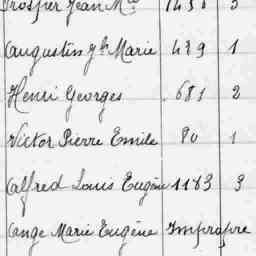 Prosper Jean M
Augustin Marie 429 1
Henri Georges 681 2
Victor Pierre Emile 80 1
Alfred Louis Eugène 1183 3
Ange Marie Eugène Impropre